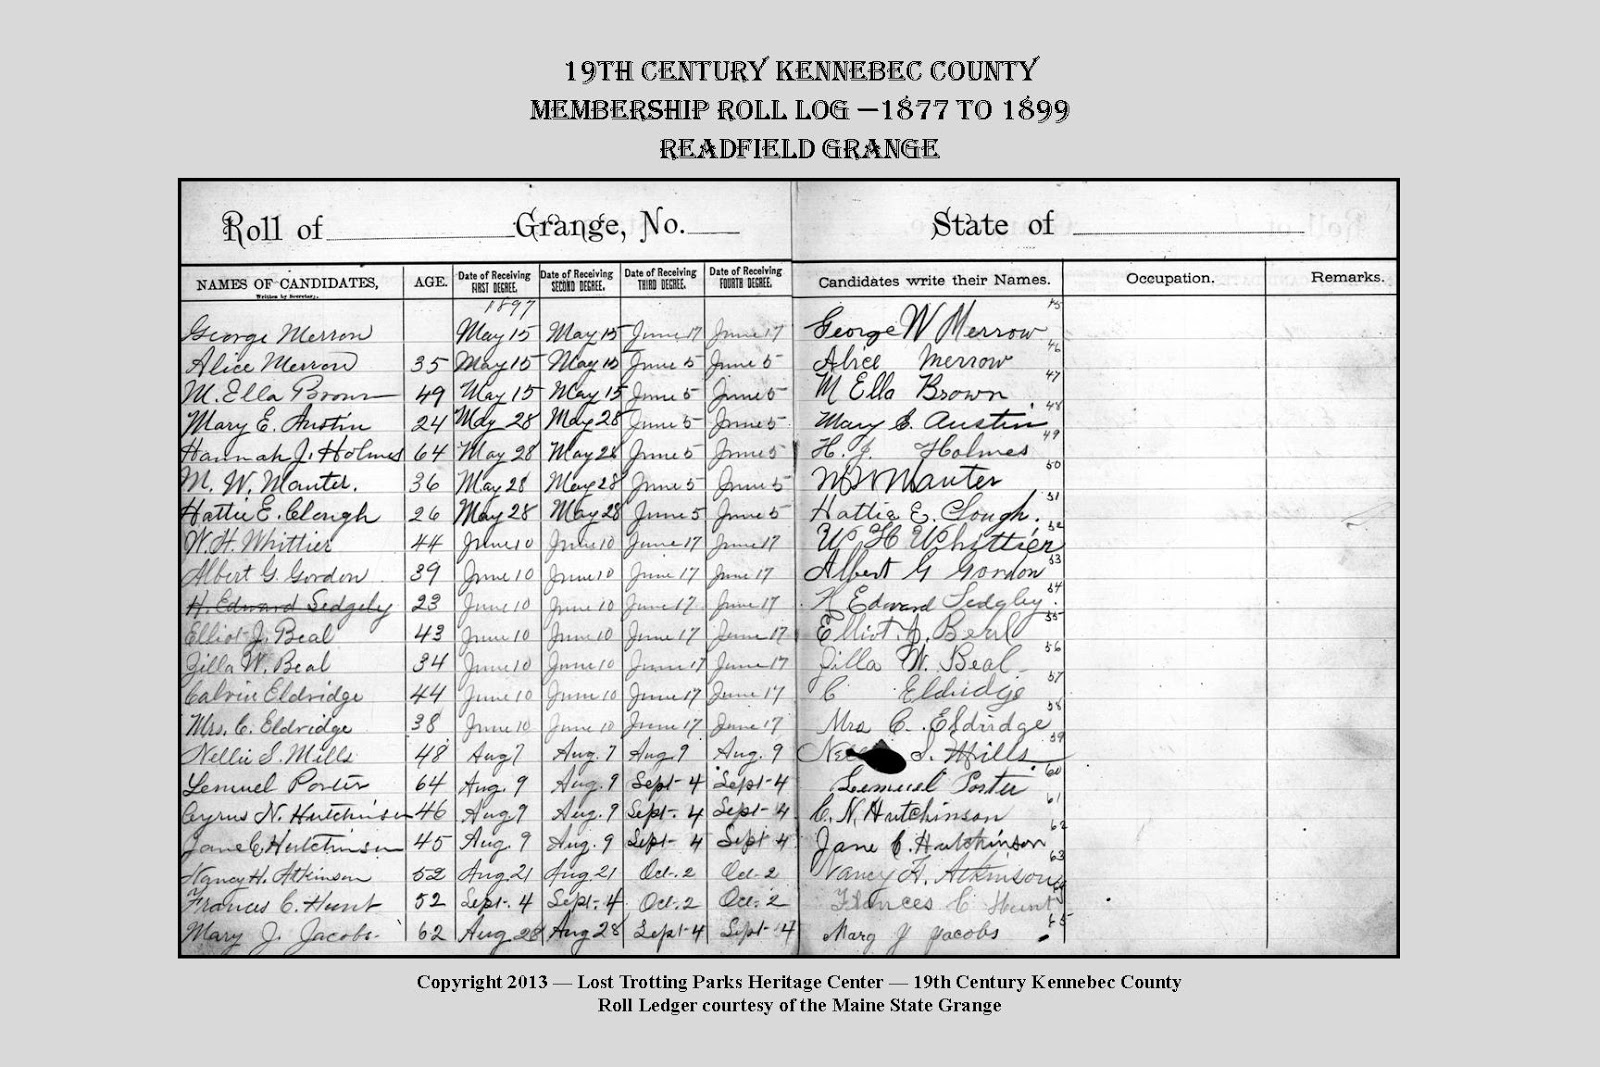 19TH CENTURY KENNEBEC COUNTY
MEMBERSHIP ROLL LOG —1877 TO 1899
READFIELD GRANGE
Roll of Grange, No. State of
NAMES OF CANDIDATES, Written by Secretary. AGE. Date of Receiving FIRST DEGREE. Date of Receiving SECOND DEGREE. Date of Receiving THIRD DEGREE. Date of Receiving FOURTH DEGREE. Candidates write their Names. Occupation. Remarks.
1897
George Merrow May 15 May 15 June 17 June 17 George W Merrow 45
Alice Merrow 35 May 15 May 15 June 5 June 5 Alice Merrow 46
M. Ella Brown 49 May 15 May 15 June 5 June 5 M Ella Brown 47
Mary E. Austin 24 May 28 May 28 June 5 June 5 Mary E. Austin 48
Hannah J. Holmes 64 May 28 May 28 June 5 June 5 H. J. Holmes 49
M. W. Manter. 36 May 28 May 28 June 5 June 5 M W Manter 50
Hattie E. Clough 26 May 28 May 28 June 5 June 5 Hattie E. Clough. 51
W. H. Whittier 44 June 10 June 10 June 17 June 17 W H Whittier 52
Albert G. Gordon 39 June 10 June 10 June 17 June 17 Albert G Gordon 53
H. Edward Sedgely 23 June 10 June 10 June 17 June 17 H Edward Sedgley. 54
Elliot J. Beal 43 June 10 June 10 June 17 June 17 Elliot J. Beal 55
Zilla W. Beal 34 June 10 June 10 June 17 June 17 Zilla W. Beal 56
Calvin Eldridge 44 June 10 June 10 June 17 June 17 C Eldridge 57
Mrs. C. Eldridge 38 June 10 June 10 June 17 June 17 Mrs C. Eldridge 58
Nellie S. Mills 48 Aug 7 Aug. 7 Aug. 9 Aug. 9 S. Mills 59
Lemuel Porter 64 Aug. 9 Aug. 9 Sept. 4 Sept. 4 Lemuel Porter 60
Cyrus N. Hutchinson 46 Aug 9 Aug. 9 Sept. 4 Sept. 4 C. N. Hutchinson 61
Jane C. Hutchinson 45 Aug. 9 Aug. 9 Sept. 4 Sept 4 Jane C. Hutchinson 62
Nancy H. Atkinson 52 Aug. 21 Aug 21 Oct. 2 Oct. 2 Nancy H. Atkinson 63
Frances C. Hunt 52 Sept. 4 Sept. 4 Oct. 2 Oct. 2 Frances C Hunt
Mary J. Jacobs. 62 Aug 28 Aug 28 Sept 4 Sept 4 Mary J Jacobs 65
Copyright 2013 — Lost Trotting Parks Heritage Center — 19th Century Kennebec County
Roll Ledger courtesy of the Maine State Grange